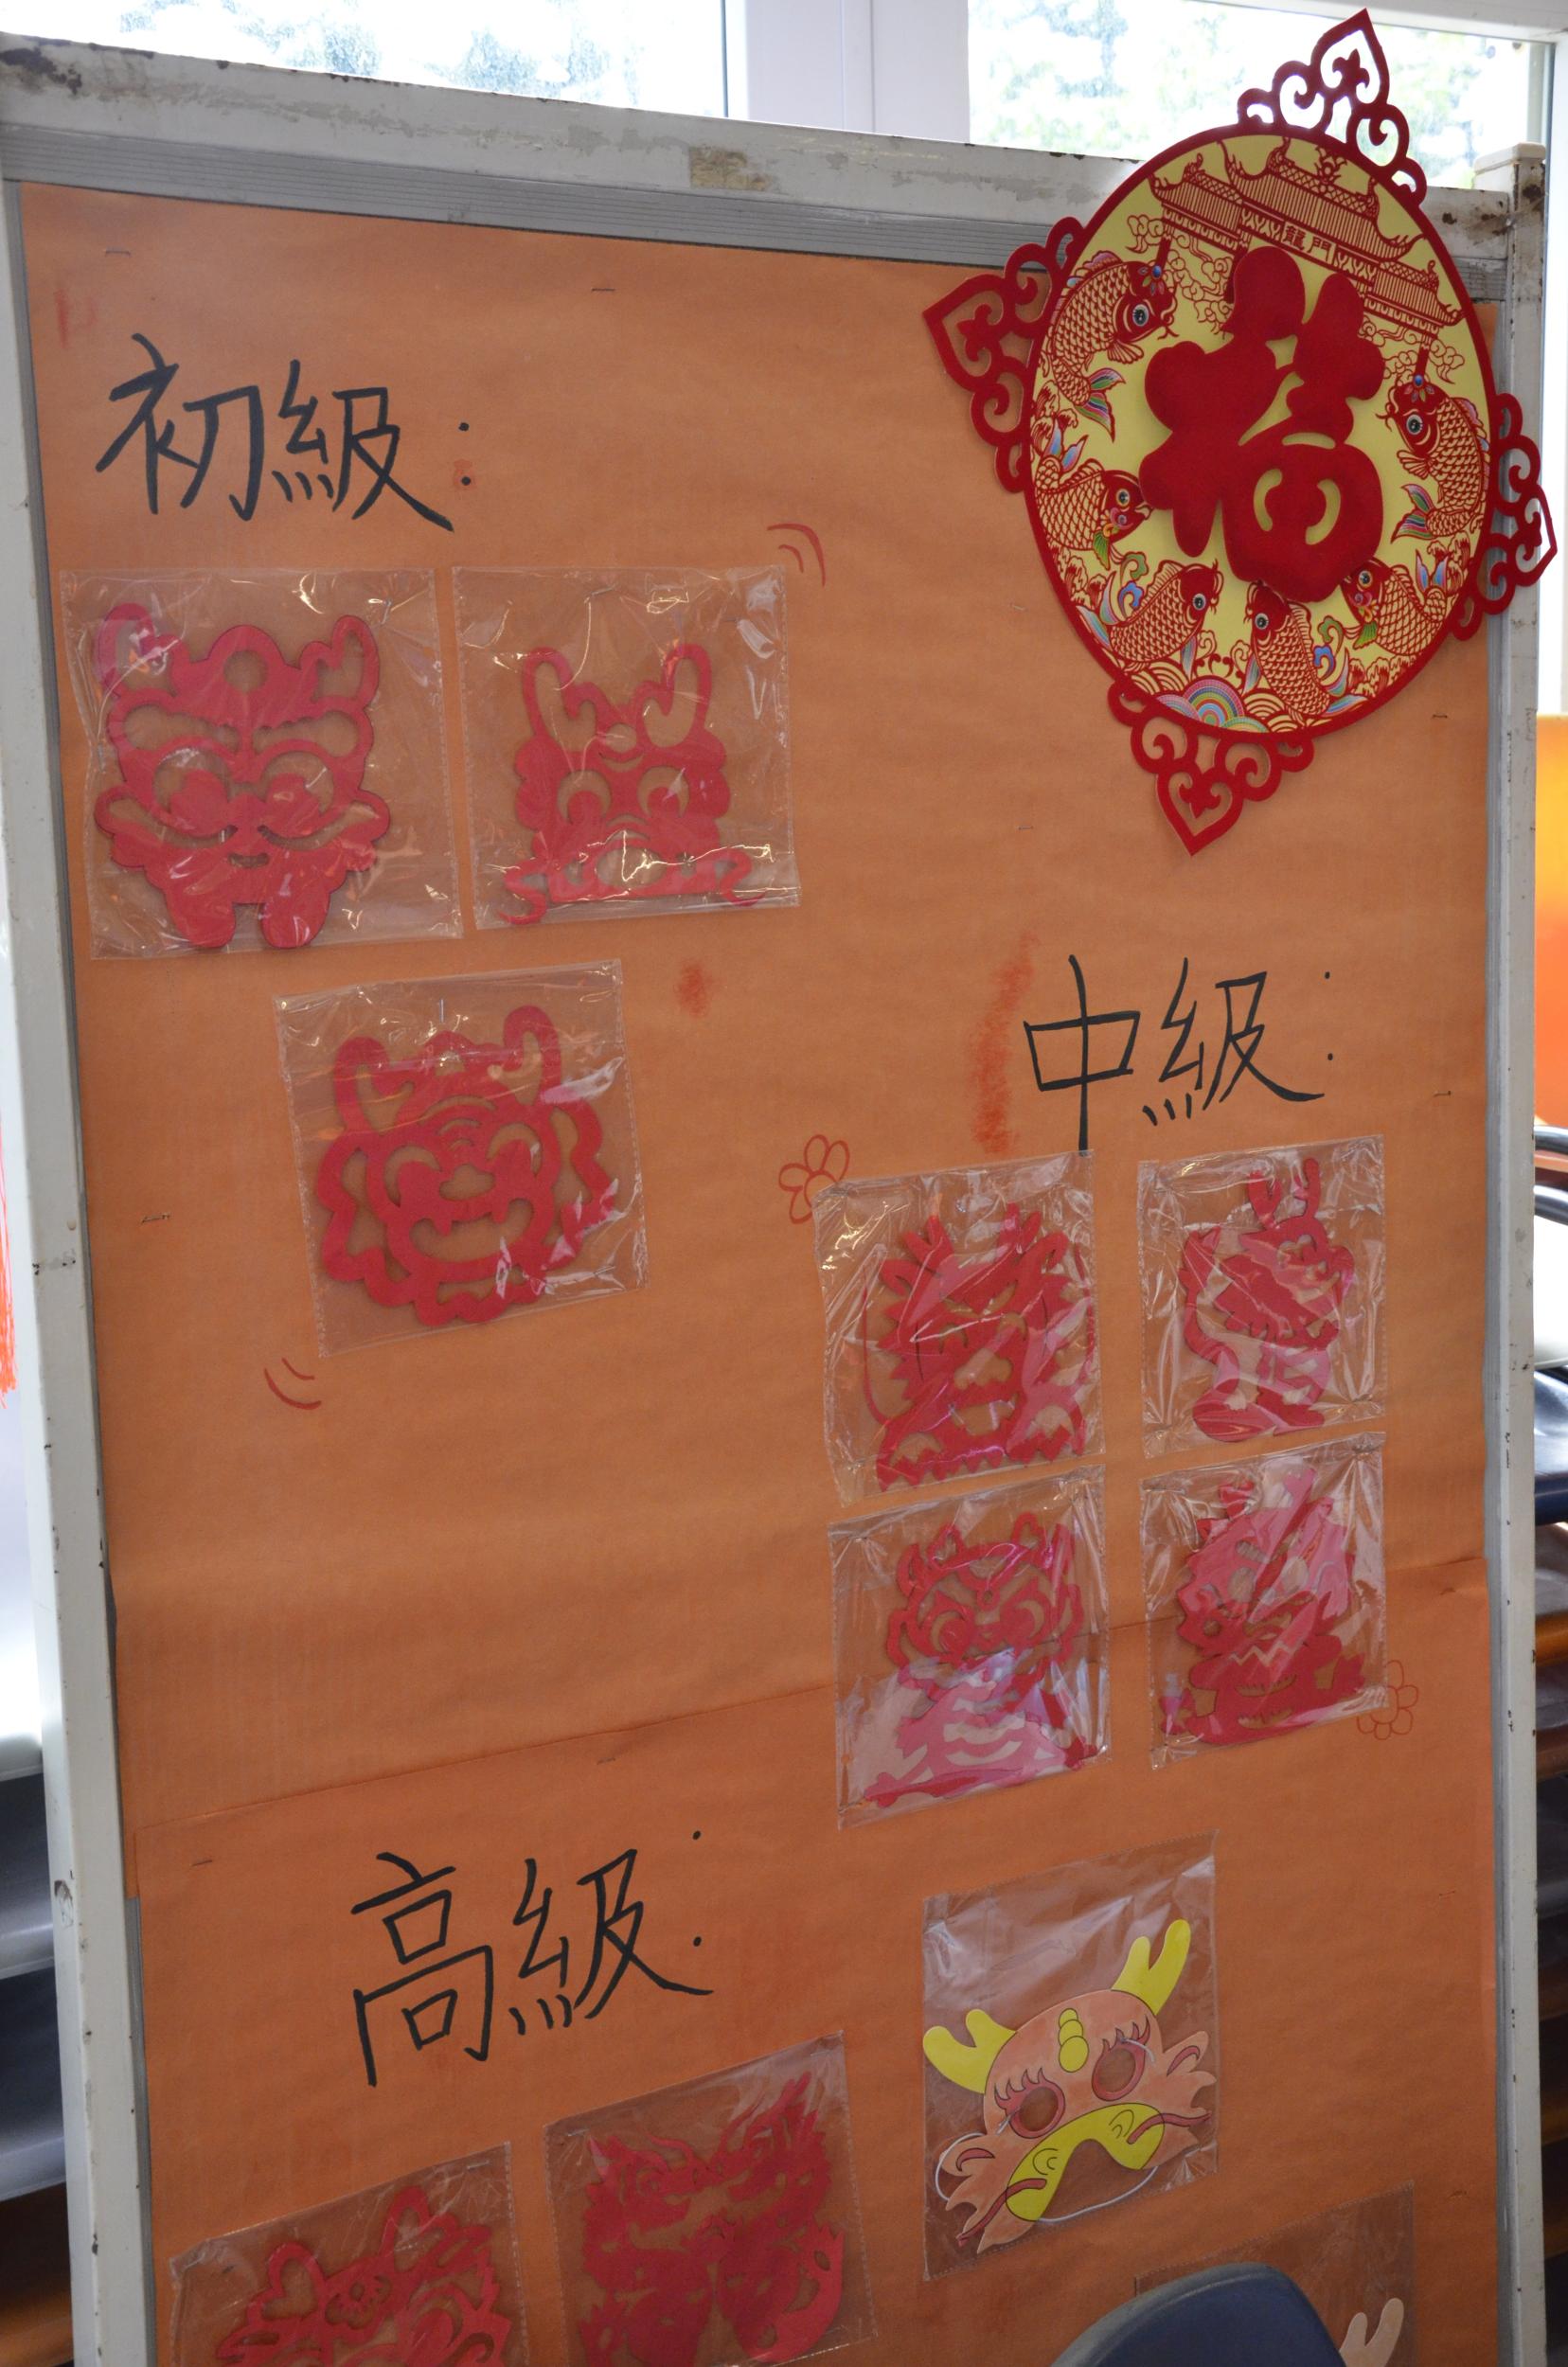 龍門
福
初級:
中級:
高級: